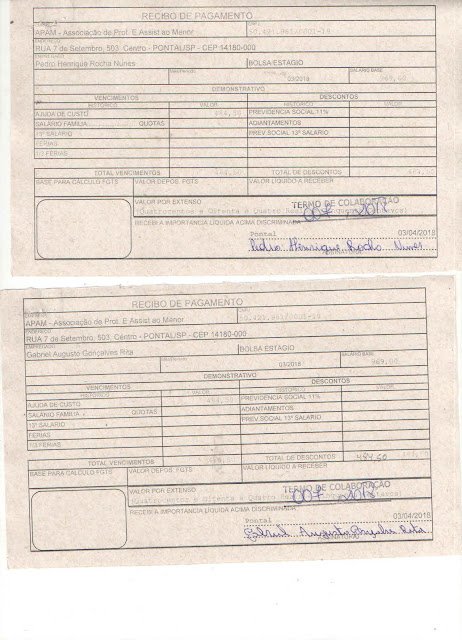 RECIBO DE PAGAMENTO
APAM - Associação de Prof. E Assist ao Menor
RUA 7 de Setembro, 503. Centro - PONTAL/SP - CEP 14180-000
Pedro Henrique Rocha Nunes BOLSA ESTAGIO
03/2018 SALARIO BASE
969,00
DEMONSTRATIVO
VENCIMENTOS DESCONTOS
HISTÓRICO VALOR HISTÓRICO VALOR
AJUDA DE CUSTO 484,50 PREVIDENCIA SOCIAL 11%
SALÁRIO FAMILIA QUOTAS ADIANTAMENTOS
13º SALÁRIO PREV SOCIAL 13º SALÁRIO
FÉRIAS
1/3 FÉRIAS
TOTAL VENCIMENTOS 484,50 TOTAL DE DESCONTOS
BASE PARA CALCULO FGTS VALOR DEPOS. FGTS VALOR LIQUIDO A RECEBER
VALOR POR EXTENSO TERMO DE COLABORAÇÃO
007 2018
RECEBI A IMPORTÂNCIA LÍQUIDA ACIMA DISCRIMINADA
Pontal 03/04/2018
Pedro Henrique Rocha Nunes
RECIBO DE PAGAMENTO
APAM - Associação de Prof. E Assist ao Menor
RUA 7 de Setembro, 503. Centro - PONTAL/SP - CEP 14180-000
Gabriel Augusto Gonçalves Rita BOLSA ESTAGIO
03/2018 SALARIO BASE
969,00
DEMONSTRATIVO
VENCIMENTOS DESCONTOS
HISTÓRICO VALOR HISTÓRICO VALOR
AJUDA DE CUSTO 484,50 PREVIDENCIA SOCIAL 11%
SALÁRIO FAMILIA QUOTAS ADIANTAMENTOS
13º SALÁRIO PREV SOCIAL 13º SALÁRIO
FÉRIAS
1/3 FÉRIAS
TOTAL VENCIMENTOS TOTAL DE DESCONTOS 484,50
BASE PARA CALCULO FGTS VALOR DEPOS. FGTS VALOR LIQUIDO A RECEBER
VALOR POR EXTENSO TERMO DE COLABORAÇÃO
007 2018
RECEBI A IMPORTÂNCIA LÍQUIDA ACIMA DISCRIMINADA
Pontal 03/04/2018
Gabriel Augusto Gonçalves Rita